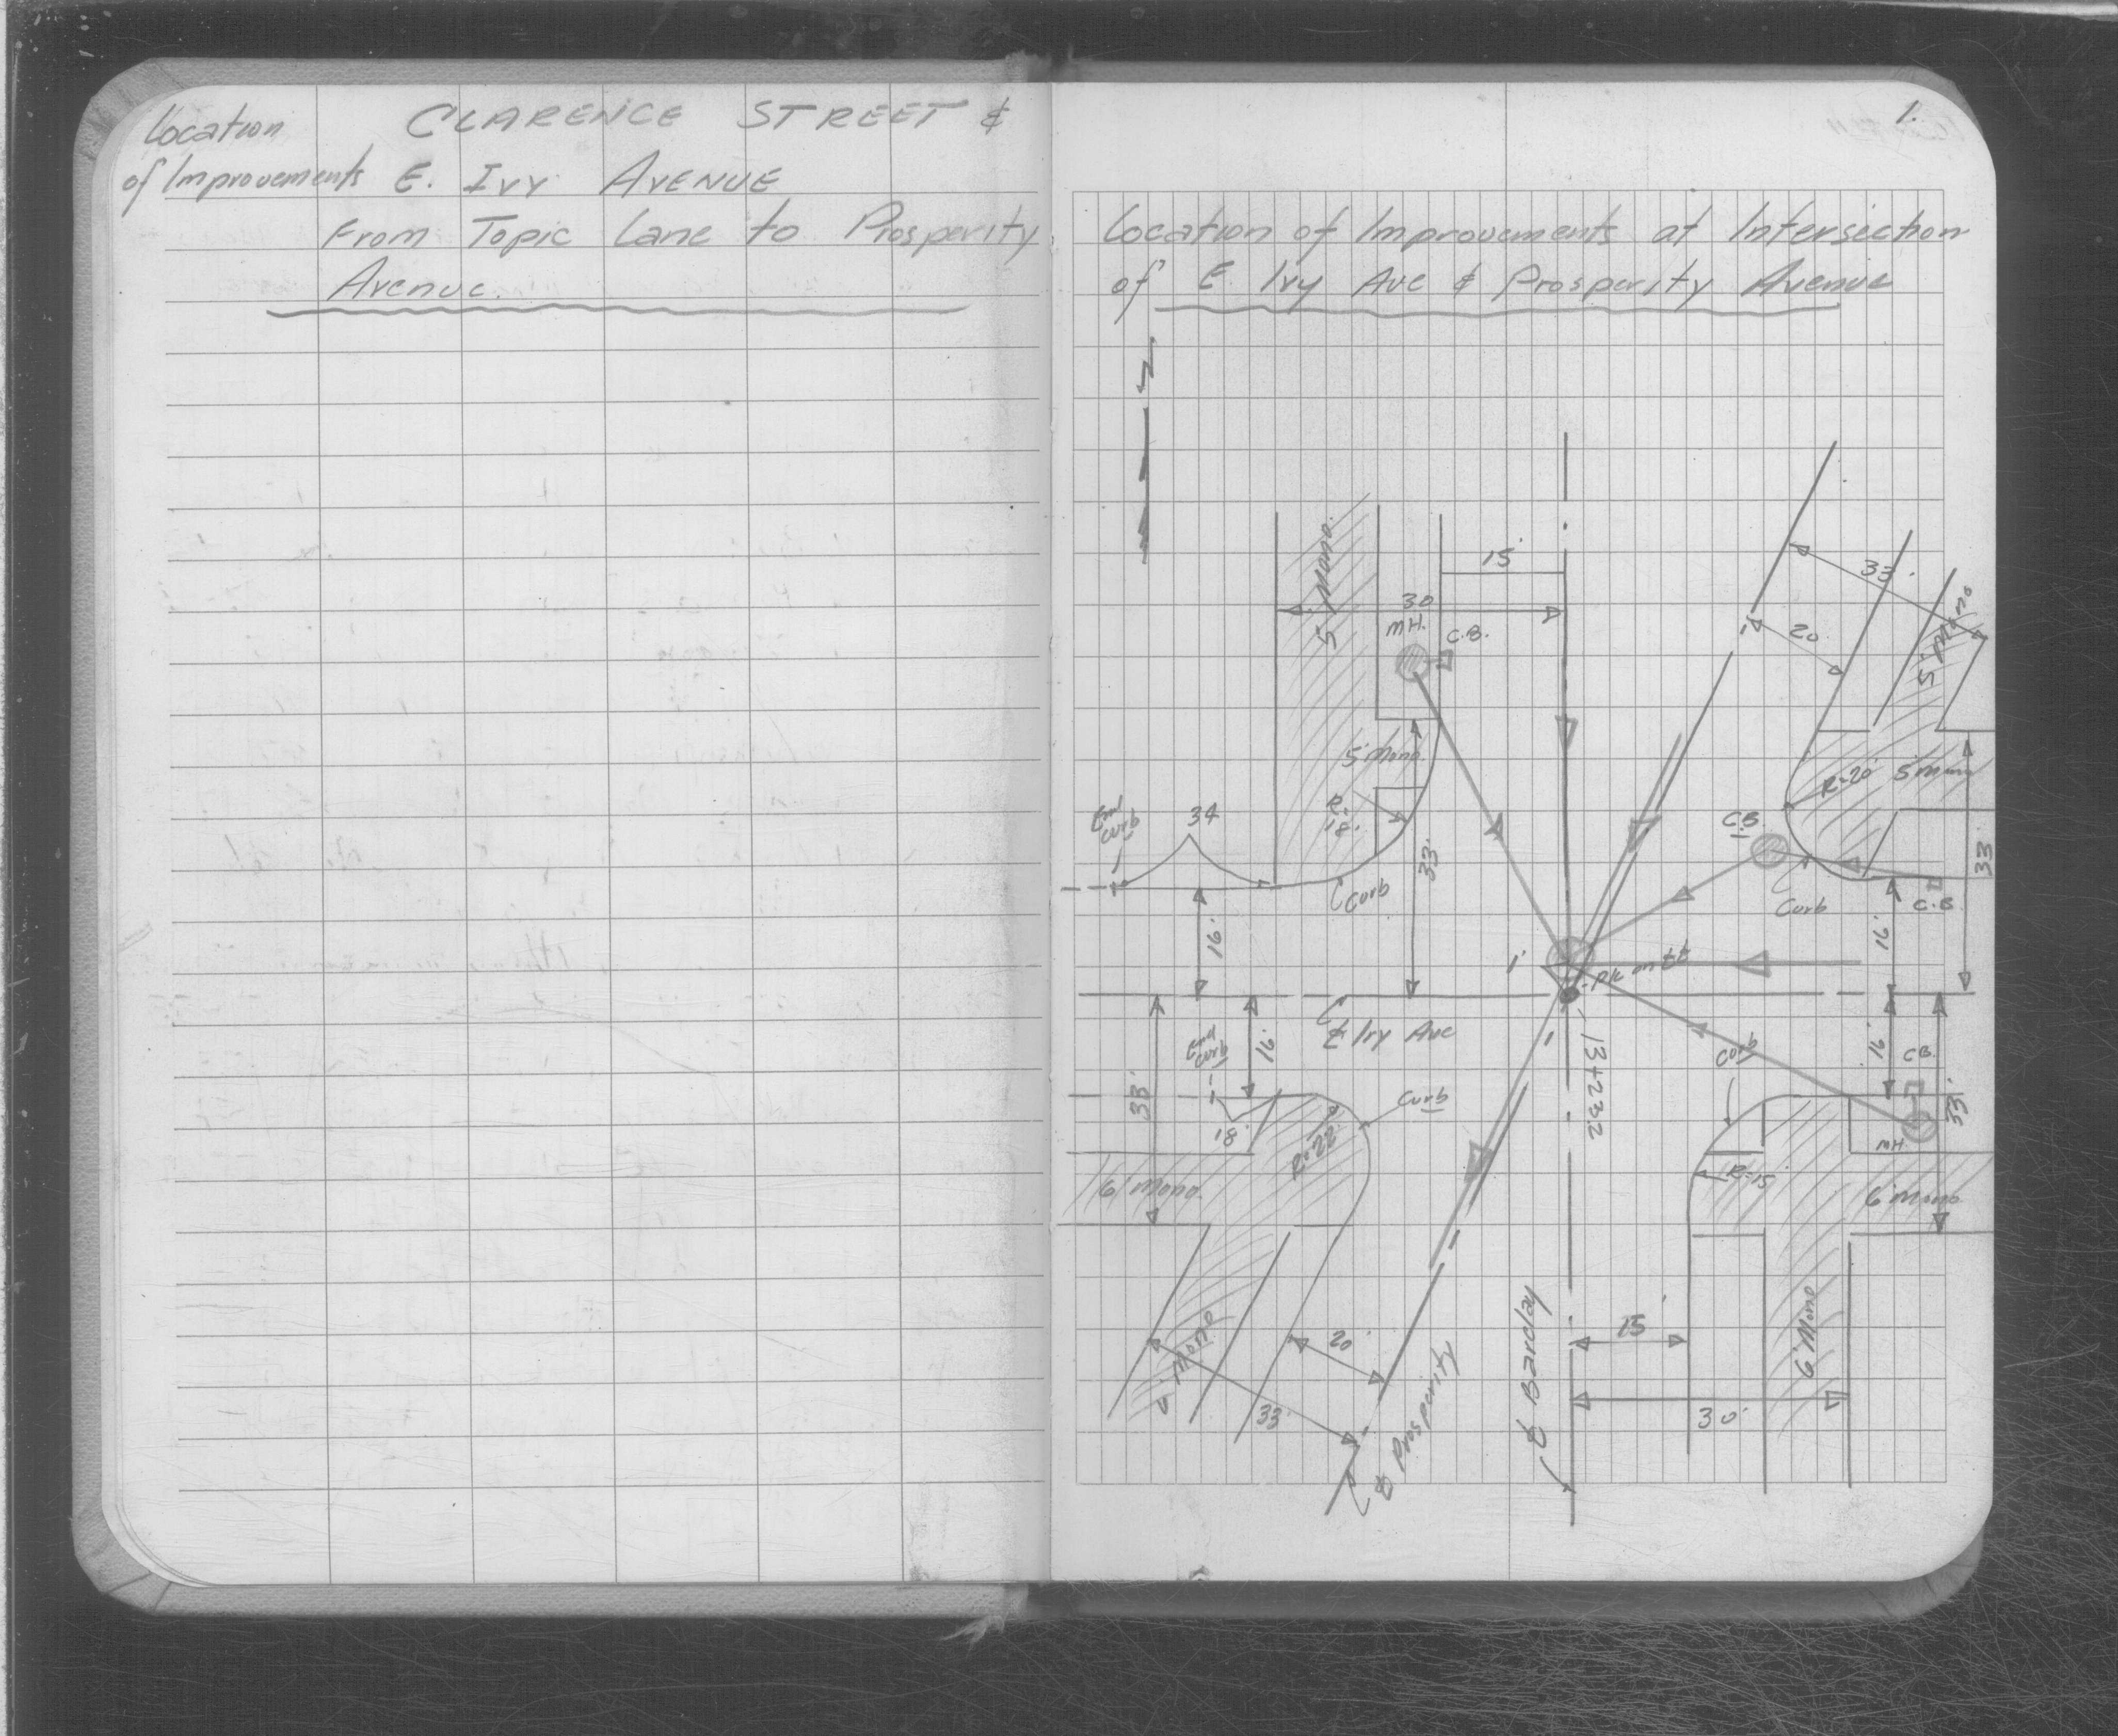 Location CLARENCE STREET &
of Improvements E. IVY AVENUE
From Topic Lane to Prosperity
Avenue.
1.
Location of Improvements at Intersection
of E. Ivy Ave & Prosperity Avenue
5' Mono.
15'
30
MH.
C.B.
33'
20
5' Mono
5' Mono.
R=
18'
End
Curb
34
33'
Curb
16'
C.B.
R=20'
5' Mono
33'
Curb
C.B.
16'
1'
PK on ℄
℄ Ivy Ave
1
13+23.2
End
Curb
16'
33'
18'
R=22'
Curb
6' Mono.
Curb
16'
C.B.
33'
MH.
R=15'
6' Mono
Mono
20'
33'
℄ Prosperity
℄ Barclay
15'
30'
6' Mono